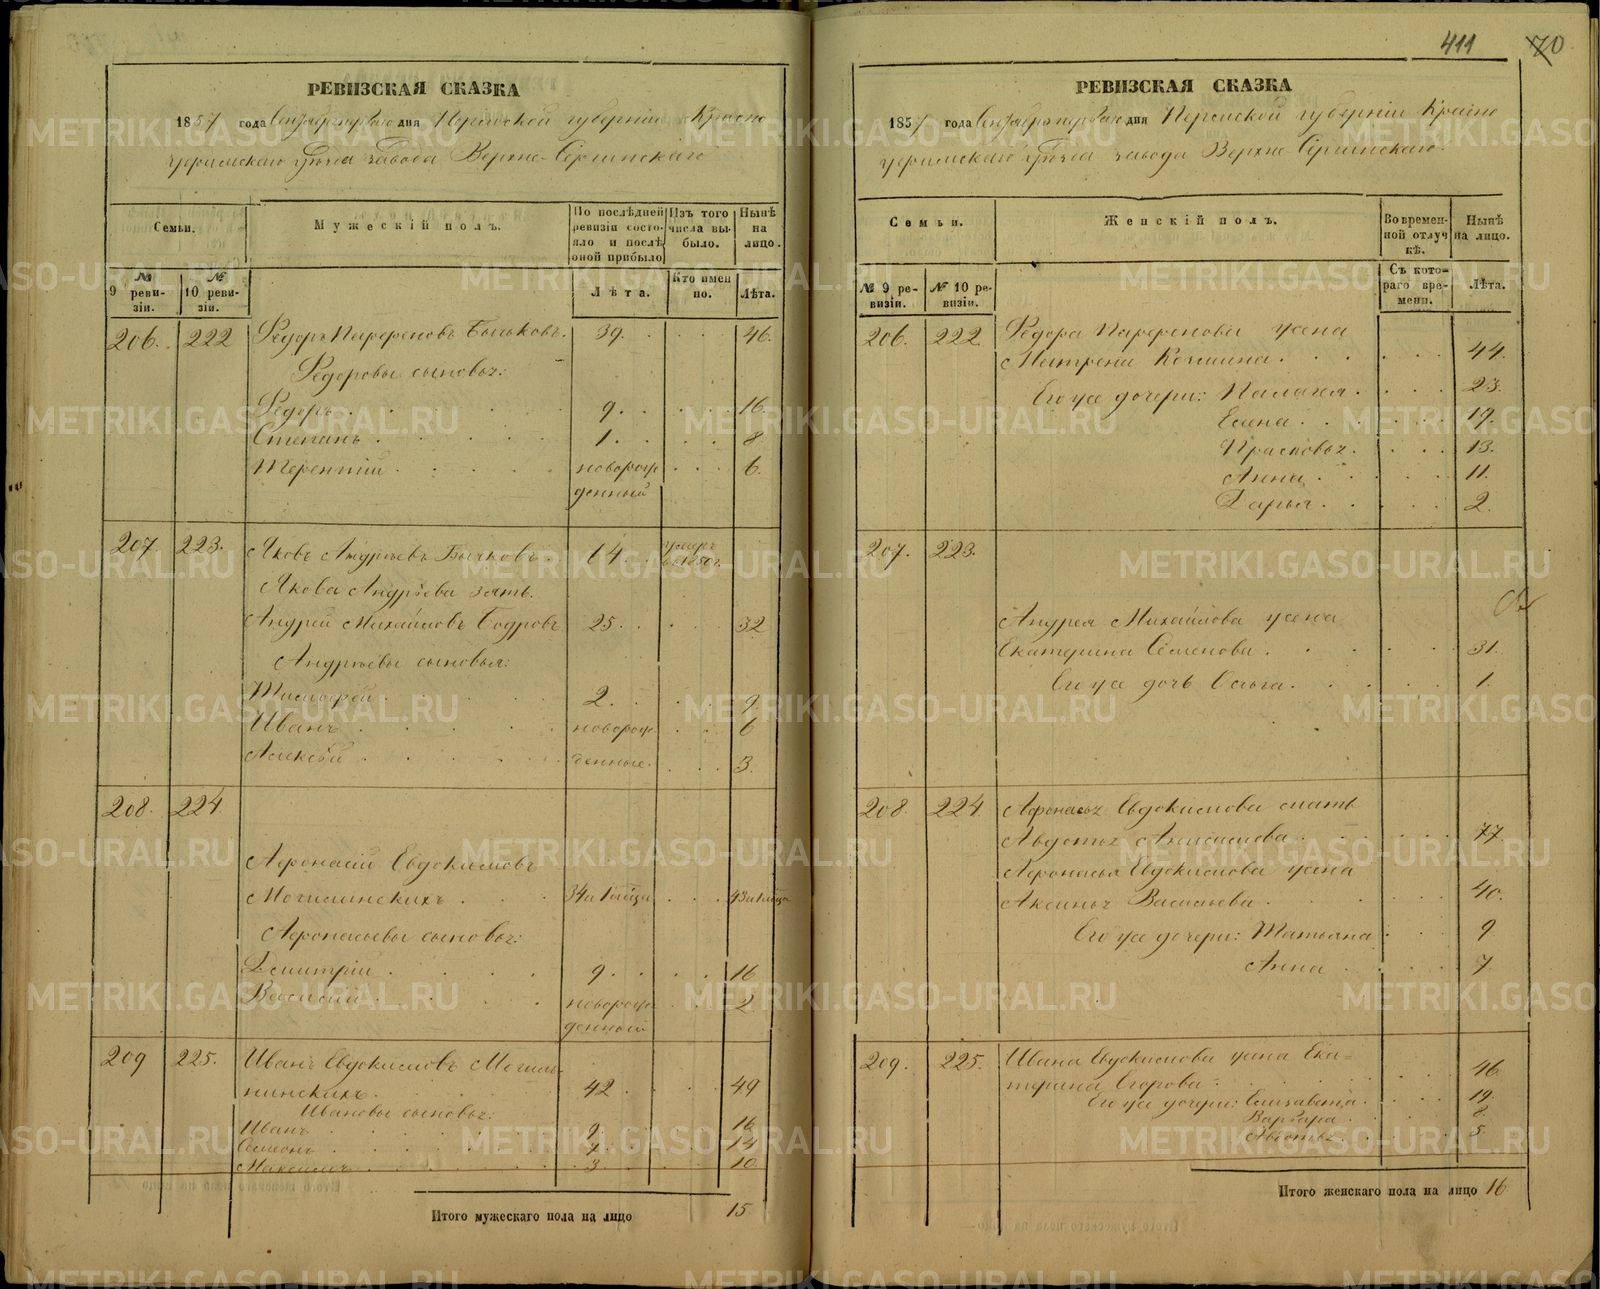 РЕВИЗСКАЯ СКАЗКА
1857 года Сентября первого дня Пермской губернии Красно
уфимскаго уѣзда завода Верхне-Сергинскаго
Семьи.
Мужескій полъ.
По послѣдней ревизіи состояло и послѣ оной прибыло
Изъ того числа выбыло.
Нынѣ на лицо.
№ 9 ревизіи.
№ 10 ревизіи.
Лѣта.
Кто именно.
Лѣта.
206. 222 Ѳедоръ Парфеновъ 39. 46.
Ѳедоровы сыновья:
Ѳедоръ 9. 16.
Степанъ 1. 8
Терентій новорож 6.
денный
207. 223. Яковъ Андреевъ Бычковъ 14. умеръ въ 1850 г.
Якова Андрѣева зять.
Андрей Михайловъ Бодровъ 25. 32
Андрѣевы сыновья:
Тимофей 2. 9.
Иванъ новорож 6
Алексѣй денные. 3.
208. 224.
Афонасій Евдокимовъ
Могилинскихъ 34 43
Афонасьевы сыновья:
Дмитрій 9. 16
Василій новорож 2.
денный
209 225. Иванъ Евдокимовъ Могили
нинскихъ 42. 49
Ивановы сыновья:
Иванъ 9. 16
Семенъ 7. 14
Максимъ 3. 10
Итого мужескаго пола на лицо 15
411 70
РЕВИЗСКАЯ СКАЗКА
1857 года Сентября первого дня Пермской губерніи Красно
уфимскаго уѣзда завода Верхне-Сергинскаго
Семьи.
Женскій полъ.
Во временной отлучкѣ.
Нынѣ на лицо.
№ 9 ревизіи.
№ 10 ревизіи.
Съ котораго времени.
Лѣта.
206. 222. Ѳедора Парфенова жена
Матрена 44.
Его же дочери: Палагея 23.
Елена 19.
Прасковья 13.
Анна 11.
Дарья 2.
207. 223.
Андрея Михайлова жена
Екатерина Семенова 31.
Его же дочь Ольга 1.
208. 224. Афонасья Евдокимова мать
Авдотья 77.
Афонасья Евдокимова жена
Аксинья Васильева 40.
Его же дочери: Татьяна 9
Анна 7.
209. 225. Ивана Евдокимова жена Ека=
терина Егорова 46.
Его же дочери: Елизавета 19.
Варвара 8
Авдотья 5
Итого женскаго пола на лицо 16
METRIKI.GASO-URAL.RU